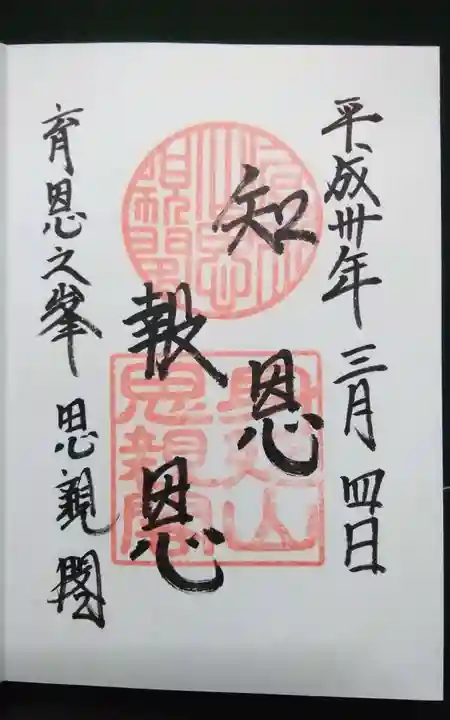 平成卅年三月四日
知恩
報恩
育恩之峯 思親閣
身延山
思親閣